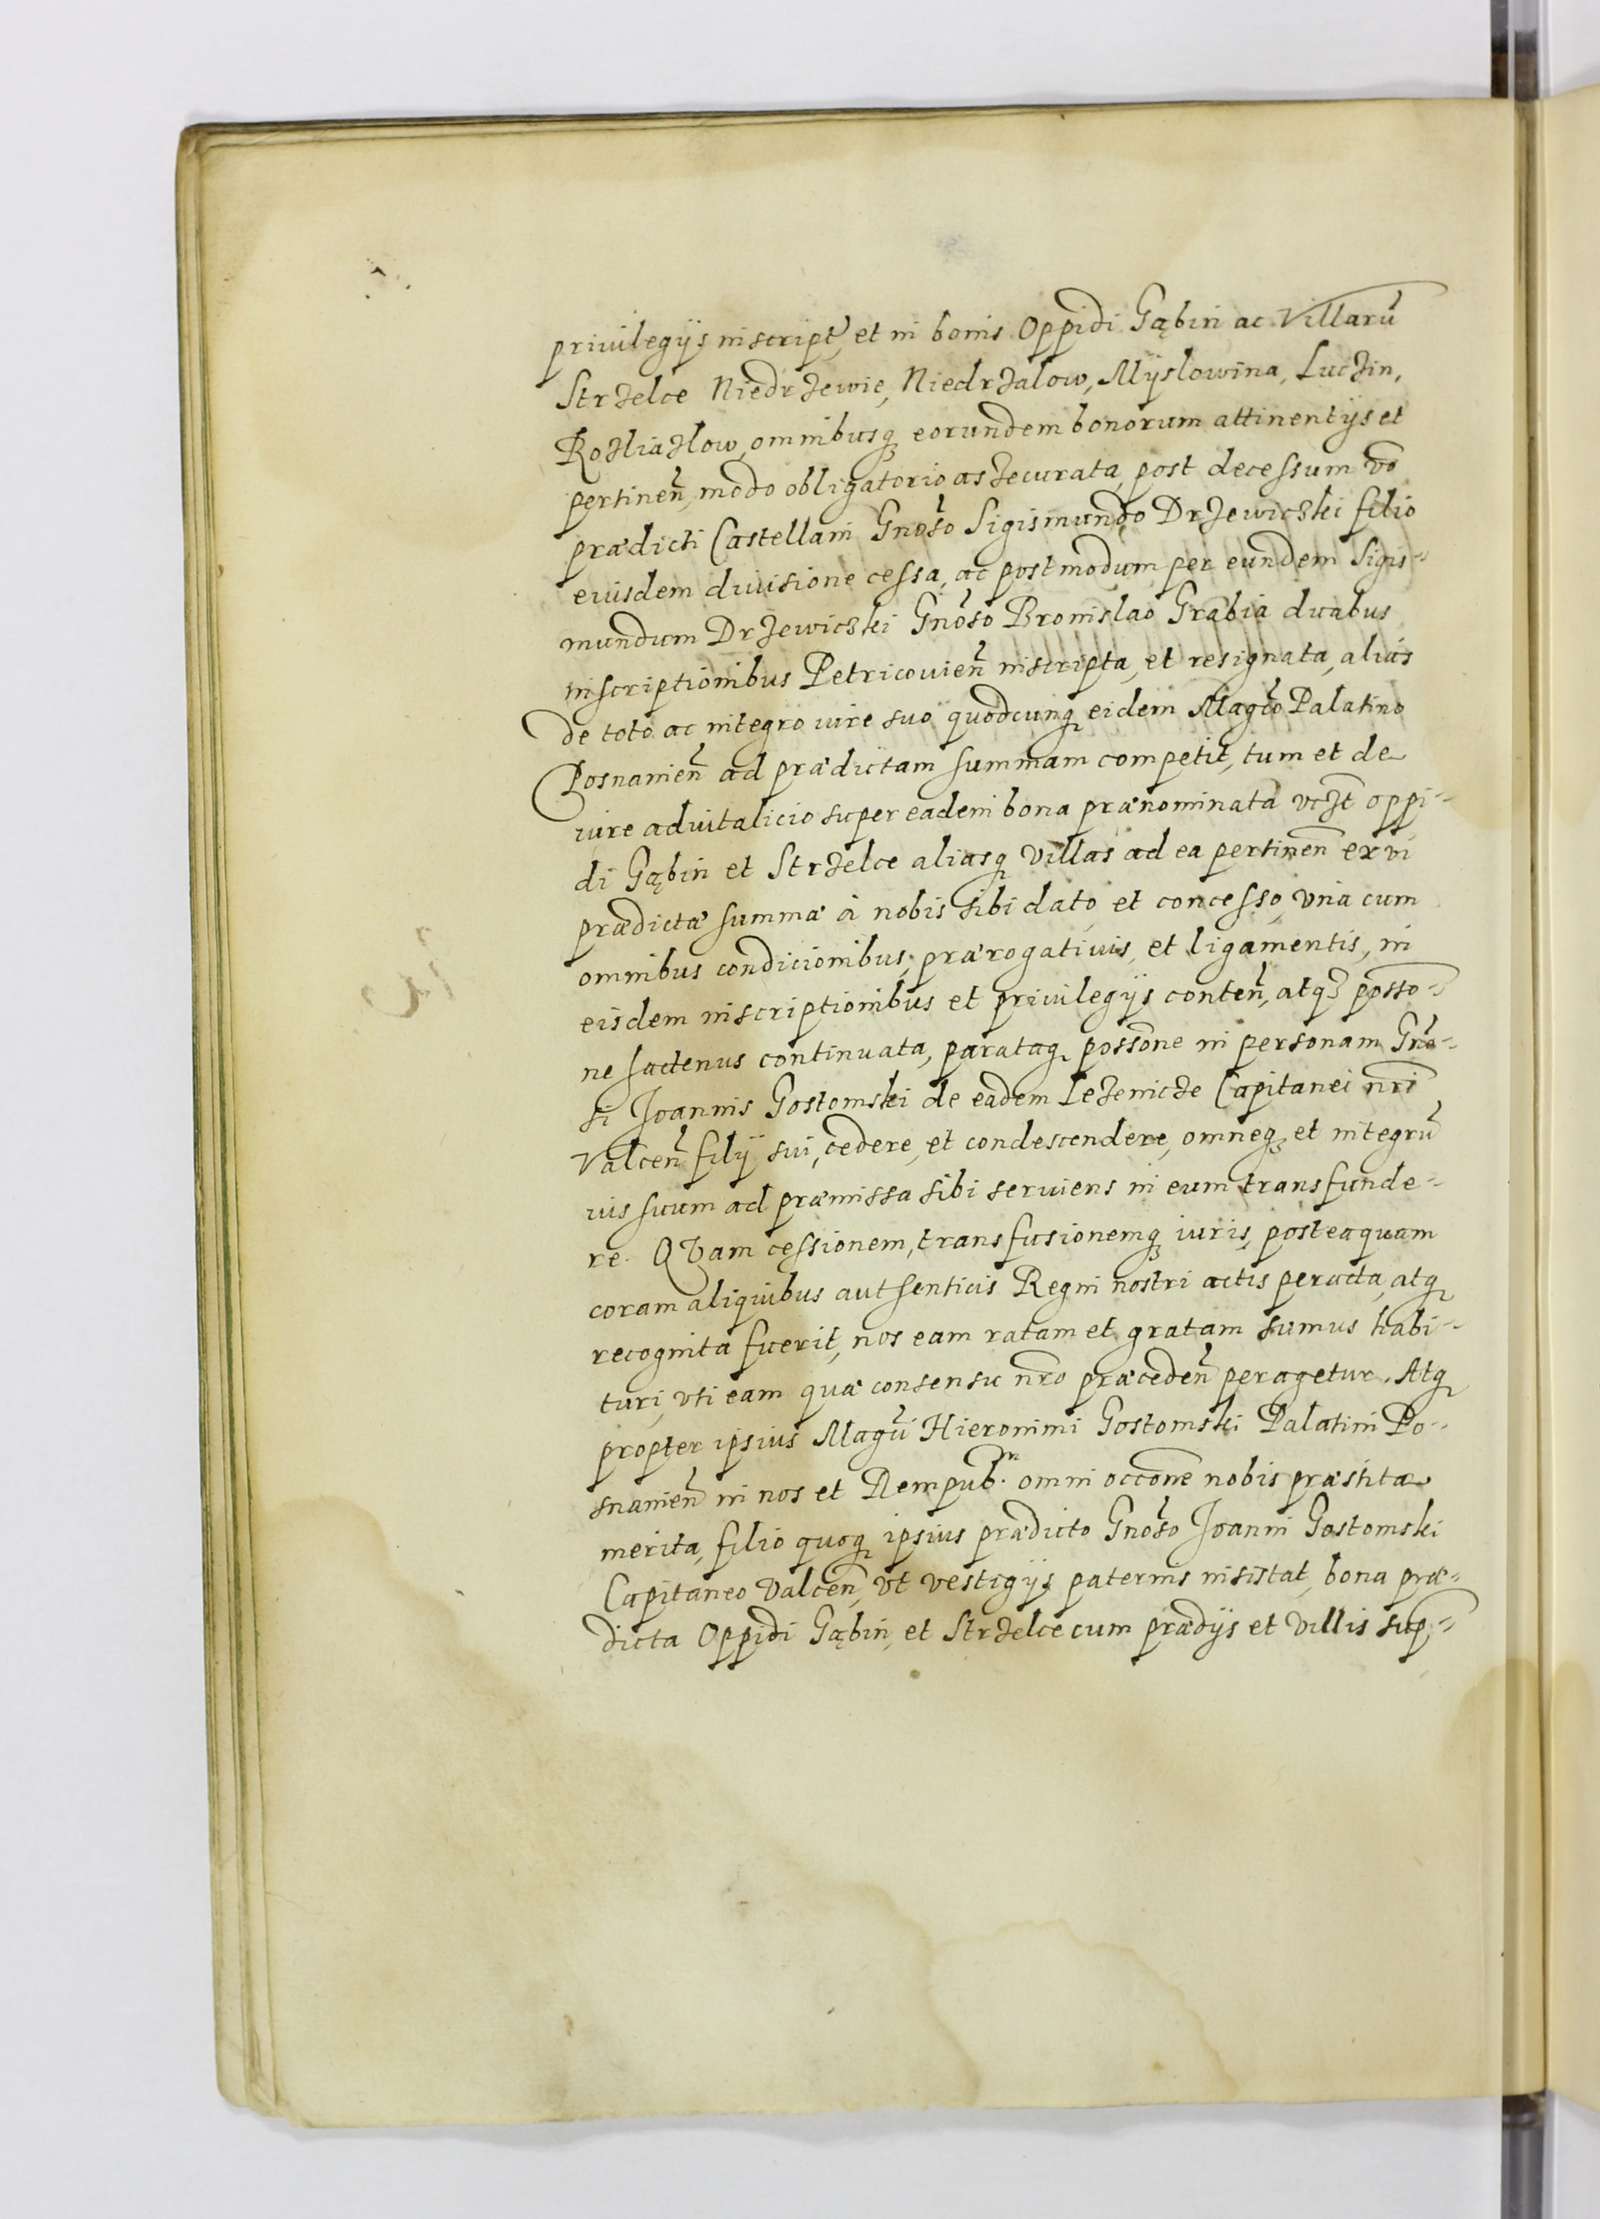 priuilegijs inscript, et in bonis Oppidi Gąbin ac Villarũ
Strzelce Niedrzewie, Niedrzalow, Mÿslowina, Luczin,
Rozliazlow, omnibusq; eorundem bonorum attinentijs et
pertineñ, modo obligatorio aszecurata, post decessum vo
prædicti Castellani Gnoso Sigismundo Drzewiczki filio
eiusdem diuisione cessa, ac postmodum per eundem Sigis-
mundum Drzewiczki Gnoso Bronislao Grabia duabus
inscriptionibus Petricouieñ inscripta, et resignata, alias
de toto ac integro iure suo quodcunq; eidem Magco Palatino
Posnanieñ ad prædictam summam competit, tum et de
iure aduitalicio super eadem bona prænominata vczt oppi-
di Gąbin et Strzelce aliasq; villas ad ea pertineñ ex vi
prædictæ summæ à nobis sibi dato, et concesso, vna cum
omnibus condicionibus, prærogatiuis, et ligamentis, in
eisdem inscriptionibus et priuilegijs conteñ, atq; posso-
ne hactenus continuata, parataq; possone in personam Gno-
si Joannis Gostomski de eadem Lezenicze Capitanei nri
Valceñ filij sui, cedere, et condescendere, omneq; et integrũ
ius suum ad præmissa sibi seruiens in eum transfunde-
re. QVam cessionem, transfusionemq; iuris, posteaquam
coram aliquibus authenticis Regni nostri actis peracta, atq;
recognita fuerit, nos eam ratam et gratam sumus habi-
turi, vti eam quæ consensu nro præcedeñ peragetur. Atq;
propter ipsius Magci Hieronimi Gostomski Palatini Po-
snanieñ in nos et Rempub. omni occone nobis præstita
merita, filio quoq; ipsius prædicto Gnoso Joanni Gostomski
Capitaneo Valceñ, vt vestigijs paternis insistat, bona præ-
dicta Oppidi Gąbin, et Strzelce cum prædijs et villis sup-